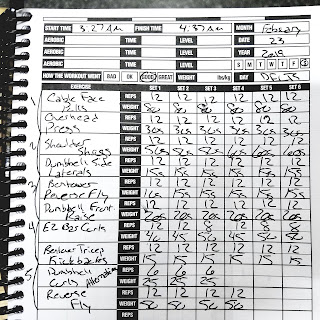 START TIME 3:27am FINISH TIME 4:37am MONTH February
AEROBIC TIME LEVEL DATE 23
AEROBIC TIME LEVEL YEAR 2019
AEROBIC TIME LEVEL S M T W T F S
HOW THE WORKOUT WENT BAD OK GOOD GREAT WEIGHT lbs/kg DAY Delts
EXERCISE SET 1 SET 2 SET 3 SET 4 SET 5 SET 6
1 Cable Face REPS 12 12 12 12 12 12
Pulls WEIGHT 50 50 50 50 50 50
Overhead REPS 12 12 12 12 12 12
Press WEIGHT 30s 30s 30s 30s 30s 30s
2 Shoulder REPS 12 12 12 12 12 12
Shrugs WEIGHT 50s 50s 50s
Dumbbell Side REPS 12 12 12 12 12 12
Laterals WEIGHT 15s 15s 15s 15s 15s 15s
3 Bentover REPS 12 12 12 12 12 12
Reverse Fly WEIGHT 15s 15s 15s 15s 15s
Dumbbell Front REPS 12 12 12 12 12 12
Raise WEIGHT 20s 20s 20s 20s 20s
4 EZ Bar Curls REPS 12 12 8 12 8 8
WEIGHT 40 40 50 50 50
Tricep REPS 12 12 12 12 12 12
Kickbacks WEIGHT 15 15 15 15 15 15
5 Dumbbell REPS 6 6 6
Curls Alternating WEIGHT 25 25 25
Reverse REPS 12 12 12 12 12
Fly WEIGHT 50 50 50 50 50